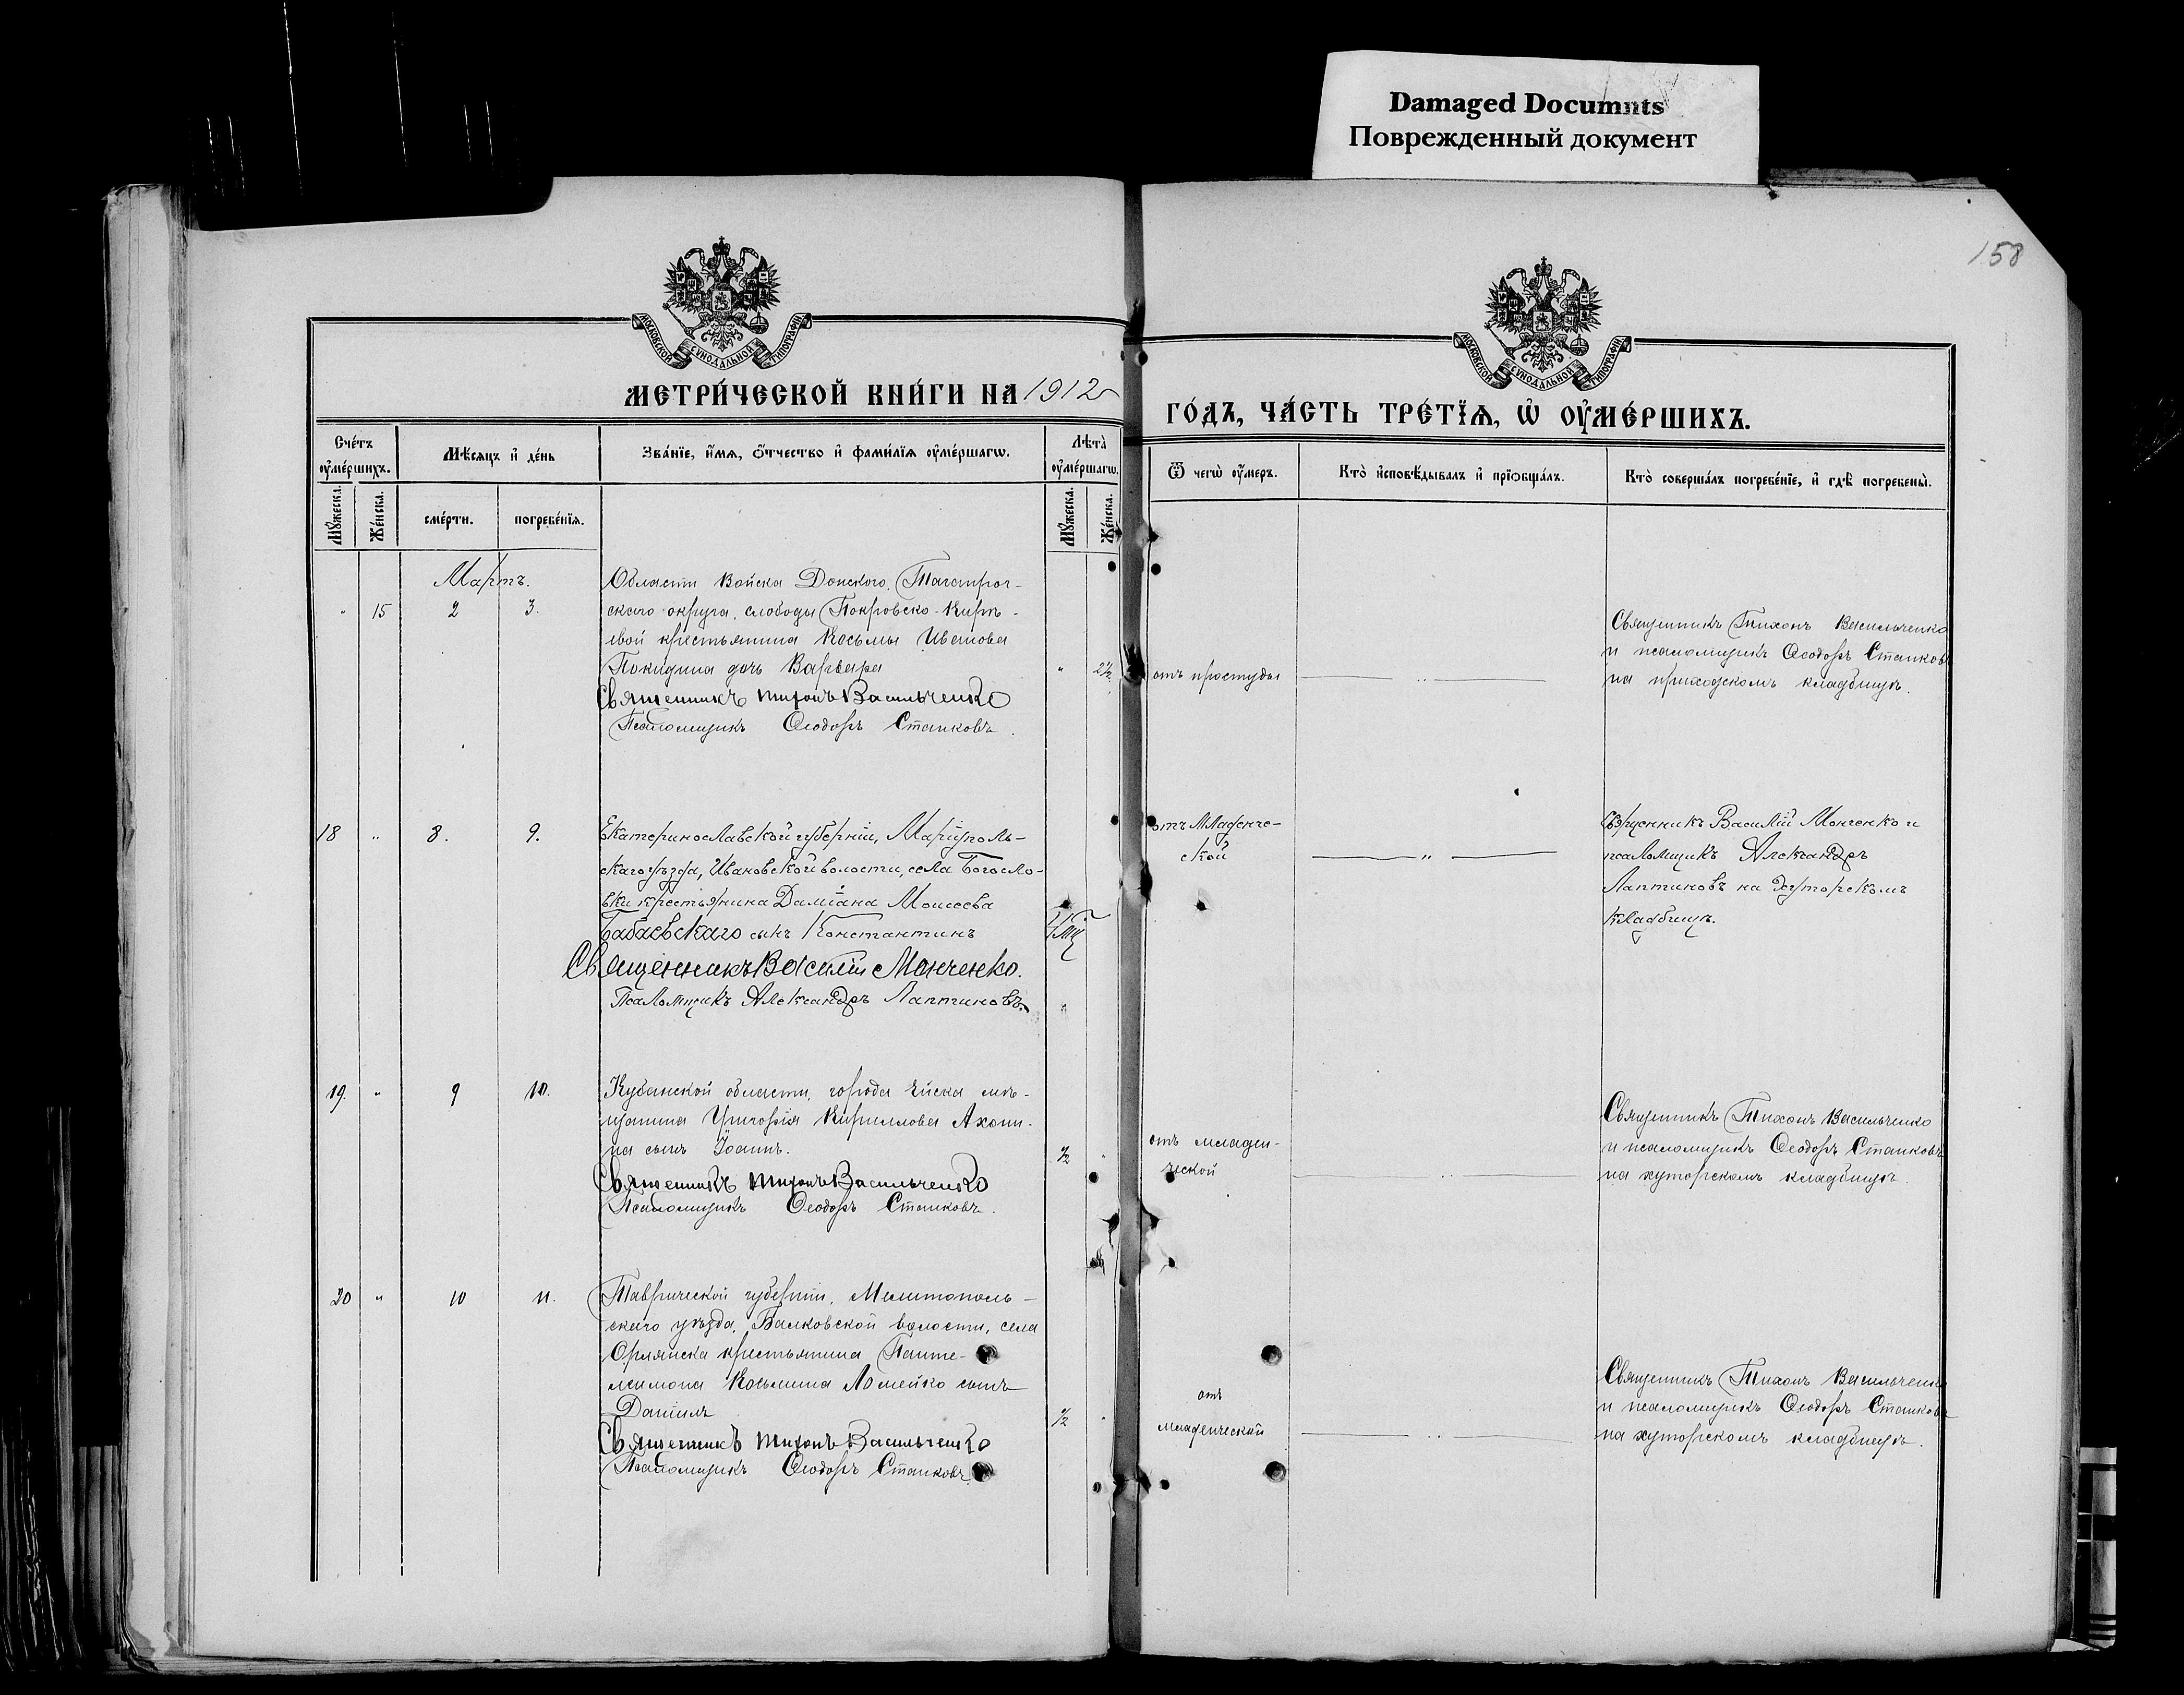 Damaged Documnts
Поврежденный документ
158
МОСКОВСКОЙ СѴНОДАЛЬНОЙ ТИПОГРАФІИ
МОСКОВСКОЙ СѴНОДАЛЬНОЙ ТИПОГРАФІИ
МЕТРИ́ЧЕСКОЙ КНИ́ГИ НА 1912
ГО́ДЪ, ЧА́СТЬ ТРЕ́ТЇѦ, Ѡ҆ ОУ҆МЕ́РШИХЪ.
Сче́тъ оу҆ме́ршихъ.
Мѣ́сяцъ и҆ де́нь
Зва́нїе, и҆́мѧ, ѻ҆́тчество и҆ фами́лїѧ оу҆ме́ршагѡ.
Лѣ́та оу҆ме́ршагѡ.
Ѿ чегѡ̀ оу҆́меръ.
Кто̀ и҆сповѣ́дывалъ и҆ прїѻбща́лъ.
Кто̀ соверша́лъ погребе́нїе, и҆ гдѣ̀ погребены̀.
Мꙋ́жеска.
Же́нска.
сме́рти.
погребе́нїѧ.
Мꙋ́жеска.
Же́нска.
Мартъ.
" 15 2 3.
Области Войска Донского, Таганрог-
скаго округа, слободы Покровско-Кирѣ-
евой крестьянина Косьмы Иванова
Покидина дочь Варвара
Священникъ Тихонъ Васильченко
Псаломщикъ Ѳеодоръ Станковъ.
" 2½
отъ простуды
Священникъ Тихонъ Васильченко
и псаломщикъ Ѳеодоръ Станковъ
на приходскомъ кладбищѣ.
18 " 8. 9.
Екатеринославской губерніи, Маріуполь-
скаго уѣзда, Ивановской волости, села Богосло-
вки крестьянина Даміана Моисеева
Бабаевскаго сынъ Константинъ
Священникъ Василій Монченко.
Псаломщикъ Александръ Лаптиковъ.
отъ младенче-
ской
Священникъ Василій Монченко и
псаломщикъ Александръ
Лаптиковъ на хуторскомъ
кладбищѣ.
19. " 9 10.
Кубанской области, города Ейска мѣ-
щанина Григорія Кириллова Ахони-
на сынъ Іоаннъ.
Священникъ Тихонъ Васильченко
Псаломщикъ Ѳеодоръ Станковъ.
½ "
отъ младен-
ческой
Священникъ Тихонъ Васильченко
и псаломщикъ Ѳеодоръ Станковъ
на хуторскомъ кладбищѣ.
20 " 10 11.
Таврической губерніи, Мелитополь-
скаго уѣзда, Балковской волости, села
Орлянска крестьянина Панте-
леимона Косьмина Ломейко сынъ
Даніилъ
Священникъ Тихонъ Васильченко
Псаломщикъ Ѳеодоръ Станковъ
½ "
отъ
младенческой
Священникъ Тихонъ Васильченко
и псаломщикъ Ѳеодоръ Станковъ
на хуторскомъ кладбищѣ.